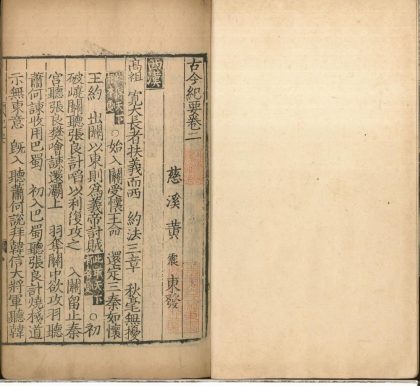 古今紀要卷二
慈溪黃震東發
西漢
高祖 寬大長者扶義而西 約法三章 秋毫無擾
天下 ○始入關受懷王命 還定三秦如懷
王約 出關以東則為義帝討賊 此取天下 ○初
破嶢關聽張良計啗以利復攻之 入關留止秦
宮聽張良樊噲諫還灞上 羽隼關中欲攻羽聽
蕭何諫收用巴蜀 初入巴蜀聽張良計燒棧道
示無東意 旣入聽蕭何說拜韓信大將軍聽韓